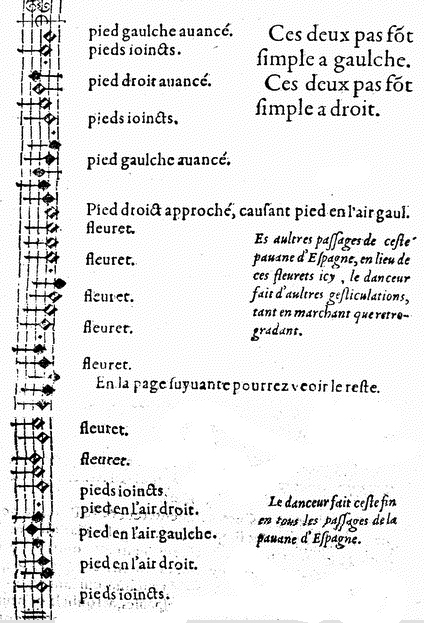 pied gaulche auancé.
pieds ioincts.
pied droit auancé.
pieds ioincts.
pied gaulche auancé.
Ces deux pas sõt
simple a gaulche.
Ces deux pas sõt
simple a droit.
Pied droict approché, causant pied en l'air gaul.
fleuret.
fleuret.
fleuret.
fleuret.
fleuret.
Es aultres passages de ceste
pauane d'Espagne, en lieu de
ces fleurets icy, le danceur
fait d'autres gesticulations,
tant en marchant que retro-
gradant.
En la page suyuante pourrez veoir le reste.
fleuret.
fleuret.
pieds ioincts.
pied en l'air droit.
pied en l'air gaulche.
pied en l'air droit.
pieds ioincts.
Le danceur fait ceste fin
en tous les passages de la
pauane d'Espagne.